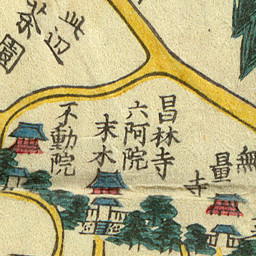 無量寺
昌林寺
六阿院
末水
不動院
此辺
茶園